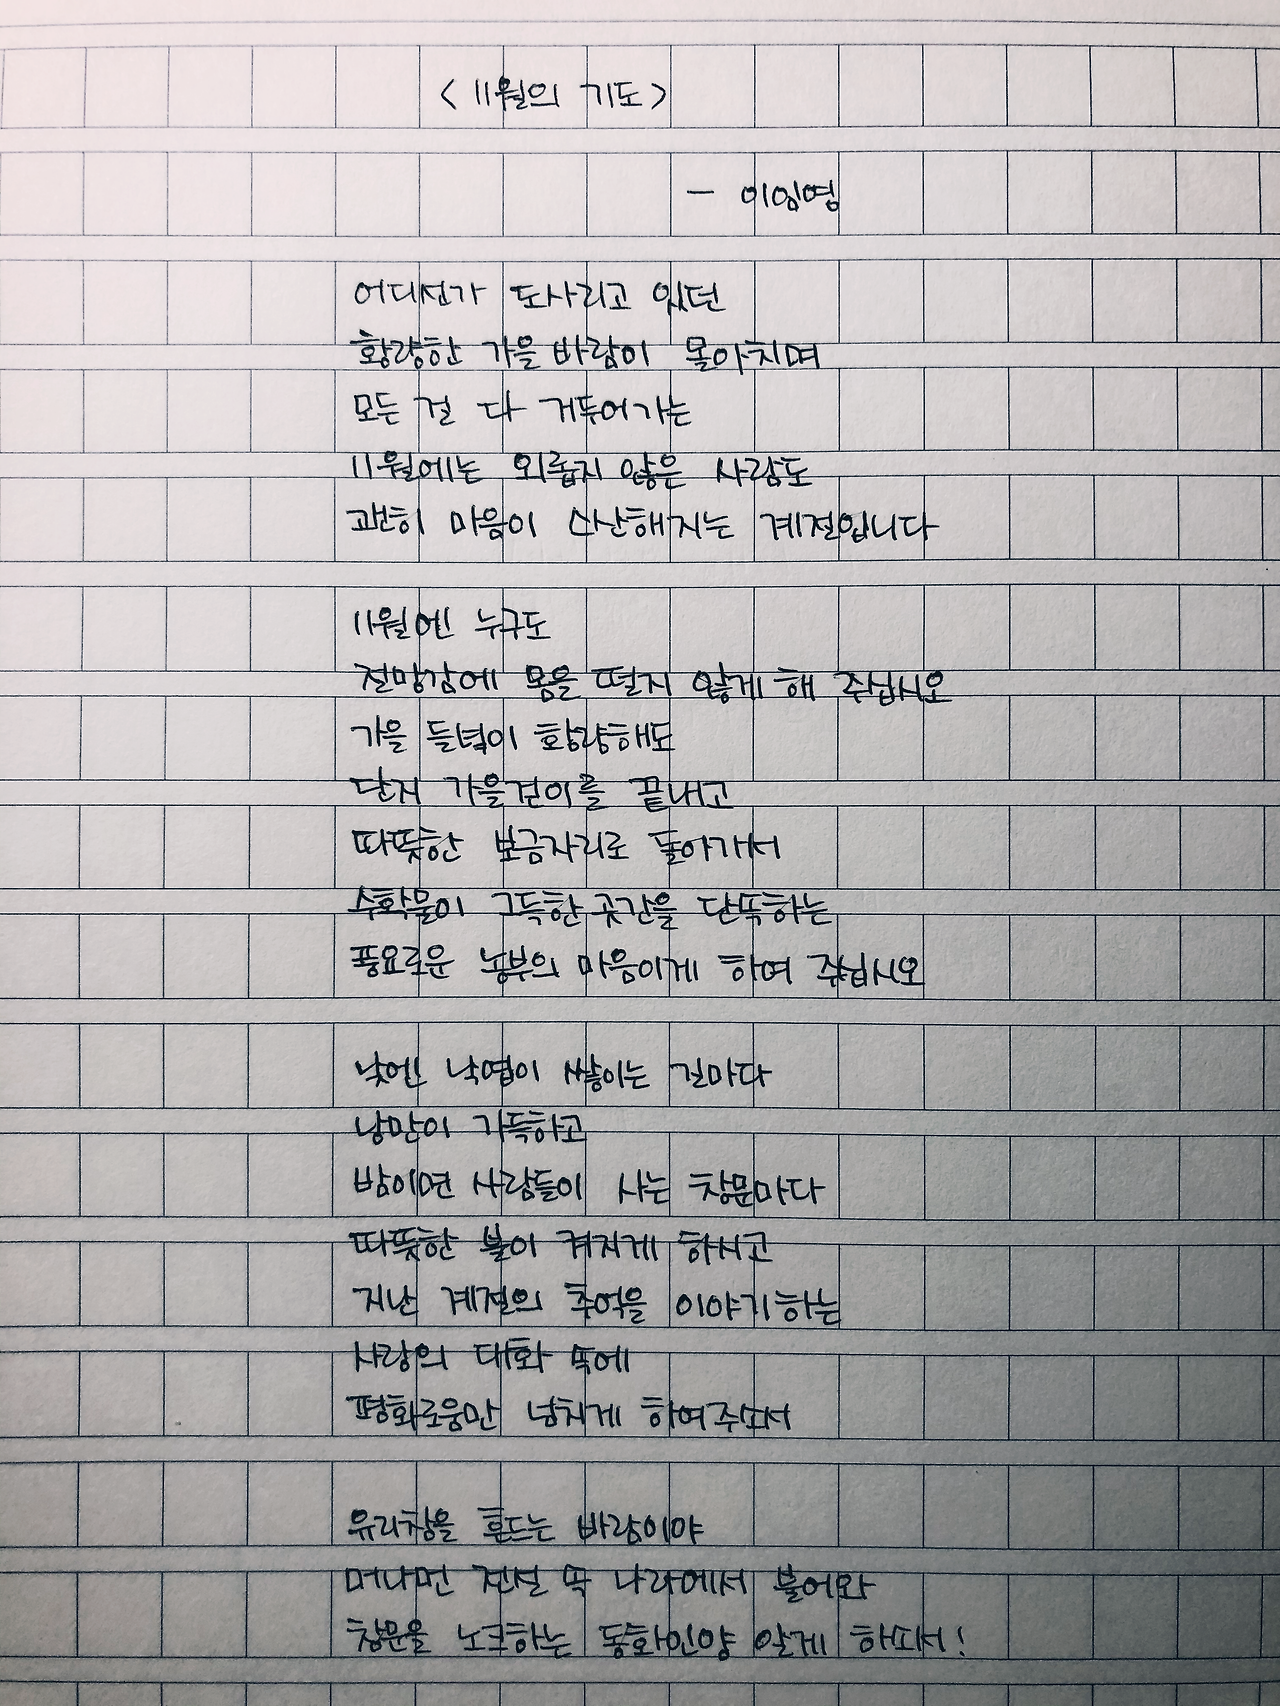 <11월의 기도>
- 이임영
어디선가 도사리고 있던
황량한 가을 바람이 몰아치며
모든 걸 다 거두어가는
11월에는 외롭지 않은 사람도
괜히 마음이 스산해지는 계절입니다
11월엔 누구도
절망감에 몸을 떨지 않게 해 주십시오
가을 들녘이 황량해도
단지 가을걷이를 끝내고
따뜻한 보금자리로 돌아가서
수확물이 그득한 곳간을 단속하는
풍요로운 농부의 마음이게 하여 주십시오
낮엔 낙엽이 쌓이는 길마다
낭만이 가득하고
밤이면 사람들이 사는 창문마다
따뜻한 불이 켜지게 하시고
지난 계절의 추억을 이야기하는
사랑의 대화 속에
평화로움만 넘치게 하여주소서
유리창을 흔드는 바람이야
머나먼 전설 속 나라에서 불어와
창문을 노크하는 동화인양 알게 하소서!